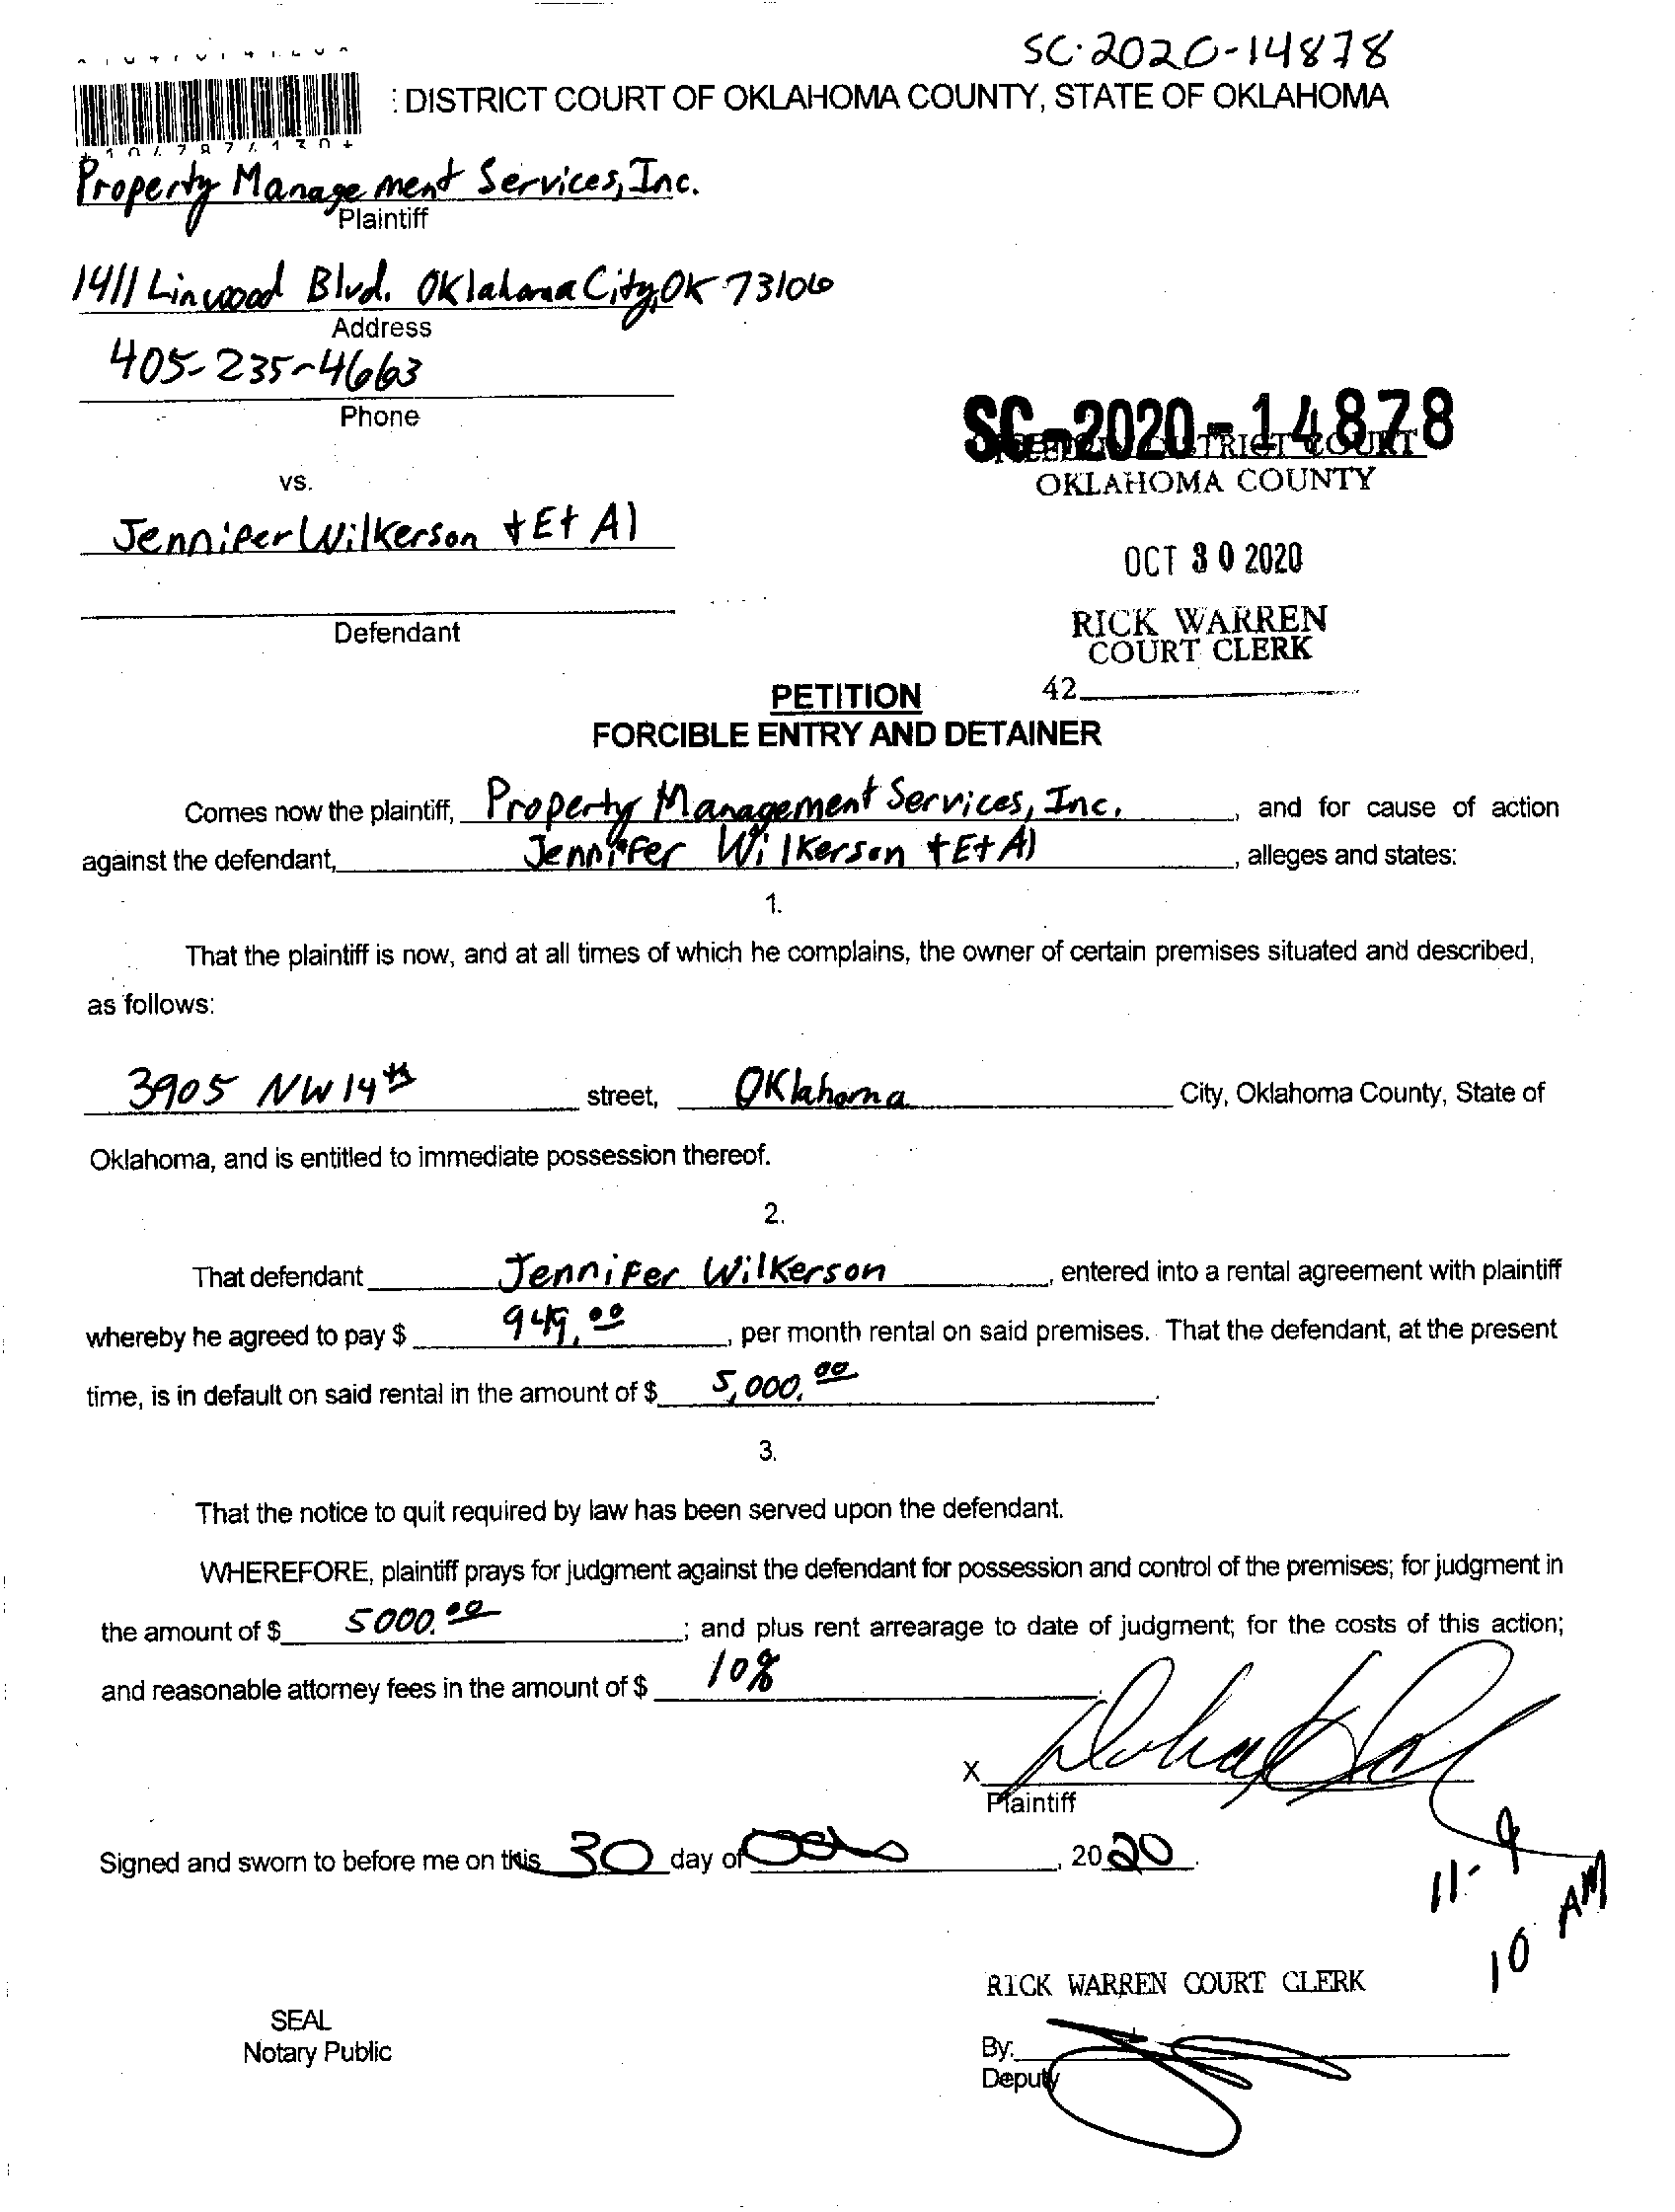 SC-2020-14878
: DISTRICT COURT OF OKLAHOMA COUNTY, STATE OF OKLAHOMA
Property Management Services, Inc.
Plaintiff
1411 Linwood Blvd. Oklahoma City, OK 73106
Address
405-235-4663
Phone
SC-2020-14878
DISTRICT COURT
OKLAHOMA COUNTY
vs.
Jennifer Wilkerson + Et Al
OCT 30 2020
Defendant
RICK WARREN
COURT CLERK
42
PETITION
FORCIBLE ENTRY AND DETAINER
Comes now the plaintiff, Property Management Services, Inc. , and for cause of action
against the defendant, Jennifer Wilkerson + Et Al , alleges and states:
1.
That the plaintiff is now, and at all times of which he complains, the owner of certain premises situated and described,
as follows:
3905 NW 14th street, Oklahoma City, Oklahoma County, State of
Oklahoma, and is entitled to immediate possession thereof.
2.
That defendant Jennifer Wilkerson , entered into a rental agreement with plaintiff
whereby he agreed to pay $ 949.00 , per month rental on said premises. That the defendant, at the present
time, is in default on said rental in the amount of $ 5,000.00 .
3.
That the notice to quit required by law has been served upon the defendant.
WHEREFORE, plaintiff prays for judgment against the defendant for possession and control of the premises; for judgment in
the amount of $ 5000.00 ; and plus rent arrearage to date of judgment; for the costs of this action;
and reasonable attorney fees in the amount of $ 10% .
X
Plaintiff
Signed and sworn to before me on this 30 day of , 2020 .
11-9
10 AM
RICK WARREN COURT CLERK
SEAL
Notary Public
By:
Deputy